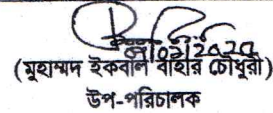 (মুহাম্মদ ইকবাল বাহার চৌধুরী)
উপ-পরিচালক